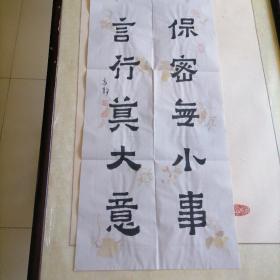 保密無小事
言行莫大意